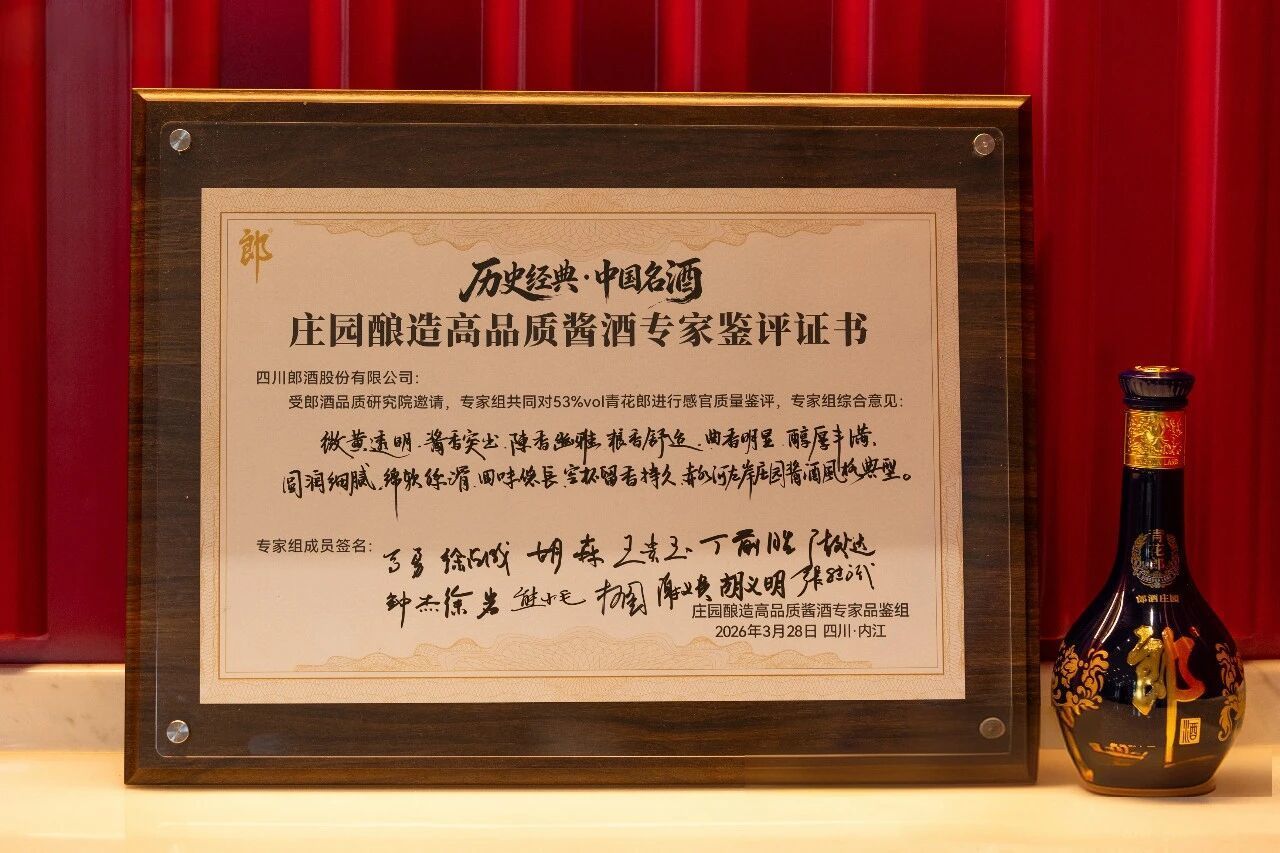 郎
历史经典·中国名酒
庄园酿造高品质酱酒专家鉴评证书
四川郎酒股份有限公司：
受郎酒品质研究院邀请，专家组共同对53%vol青花郎进行感官质量鉴评，专家组综合意见：
微黄透明、酱香突出、陈香幽雅、粮香舒适、曲香明显、醇厚丰满、
圆润细腻、绵软丝滑、回味悠長、空杯留香持久、赤水河左岸庄园酱酒風格典型。
专家组成员签名：
马勇 徐占成 胡森 王贵玉 丁前胜
钟杰 徐岩 熊小毛 胡义明
庄园酿造高品质酱酒专家品鉴组
2026年3月28日 四川·内江
青花郎
郎酒庄园
郎
酒